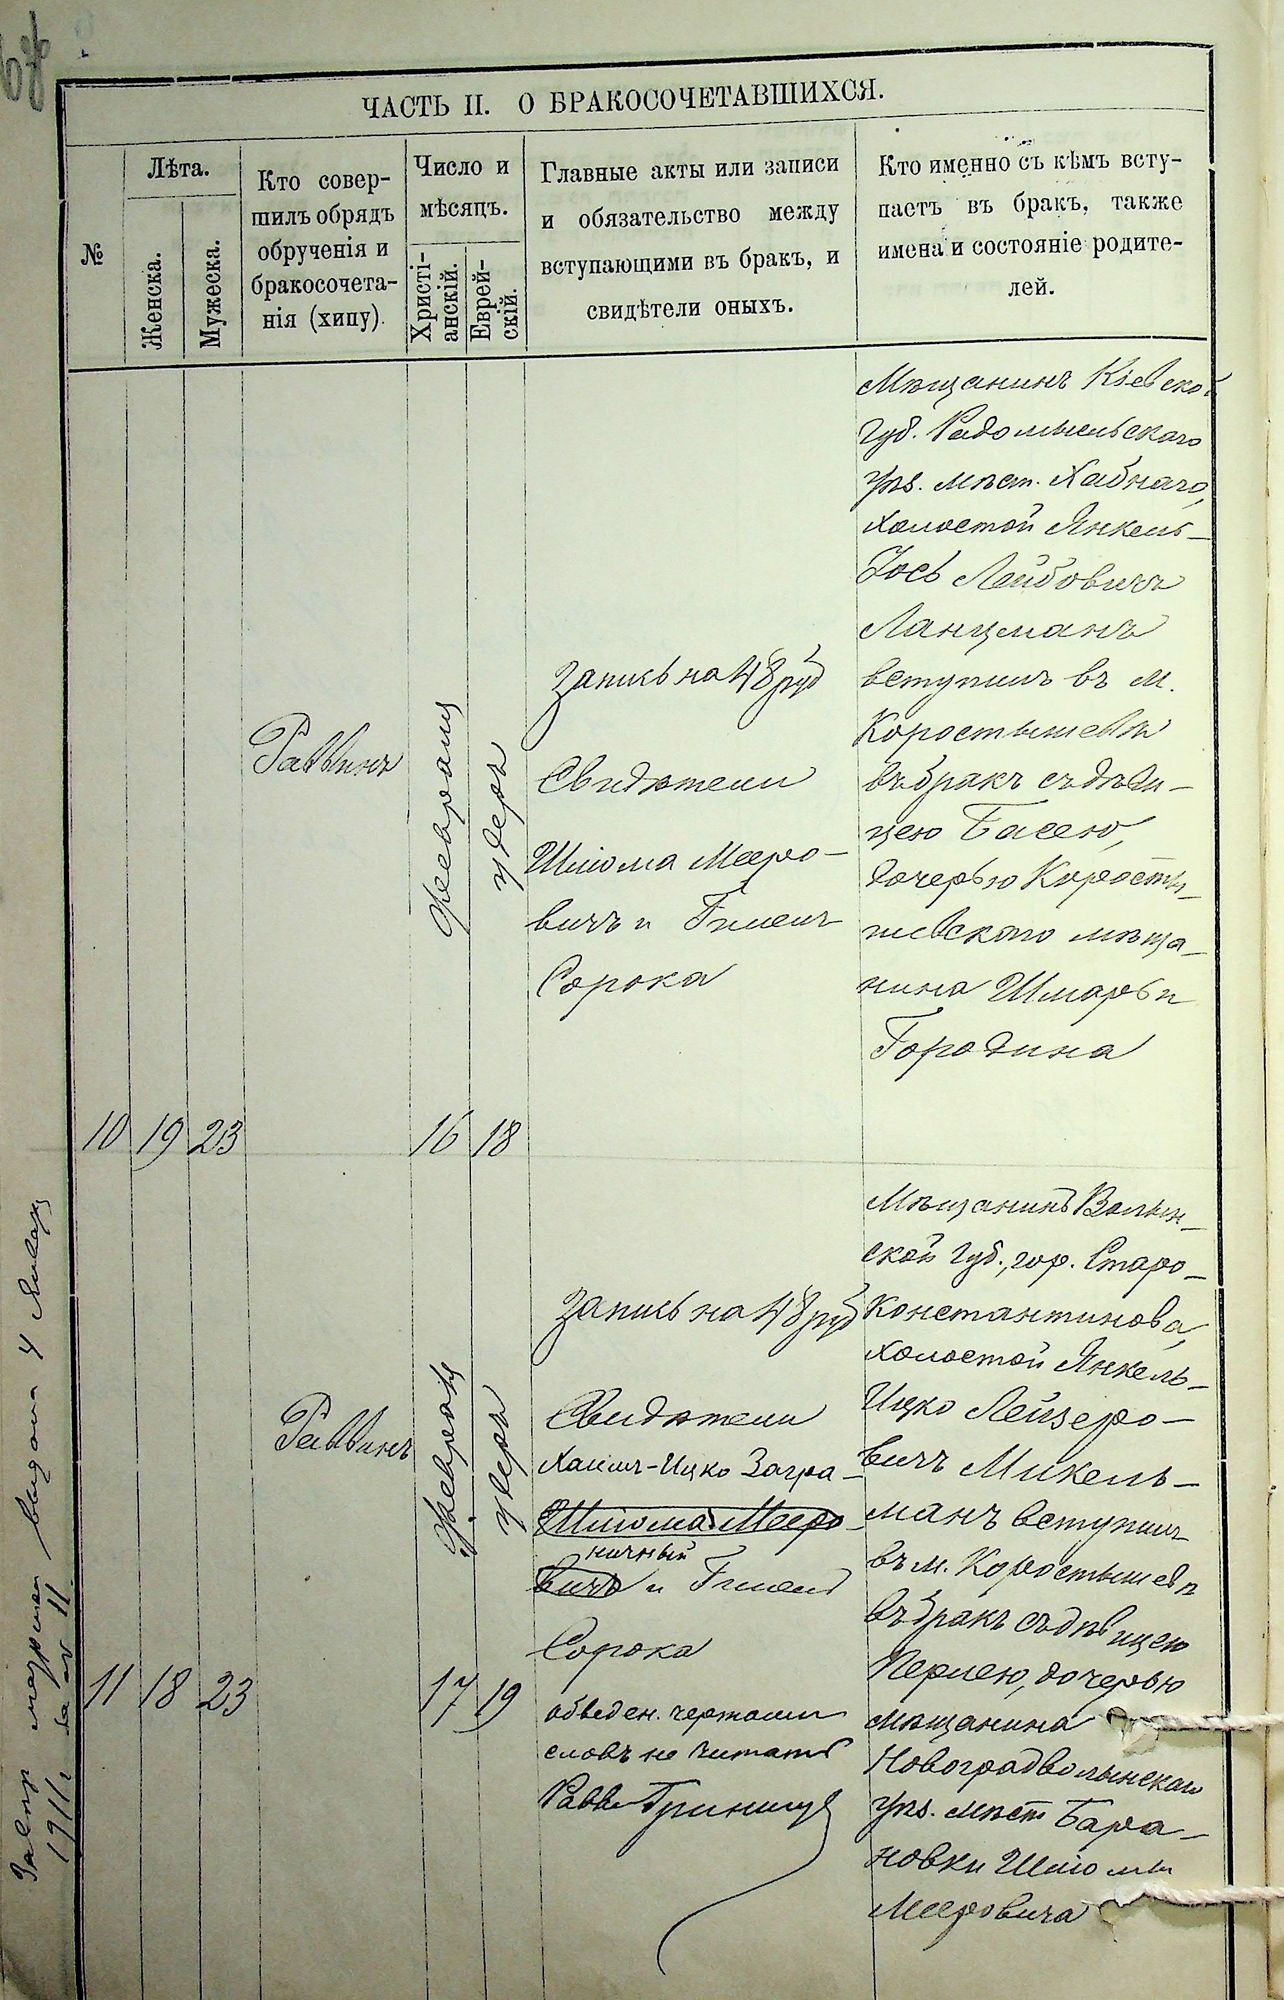 ЧАСТЬ II. О БРАКОСОЧЕТАВШИХСЯ.
№
Лѣта.
Женска.
Мужеска.
Кто совер-
шилъ обрядъ
обрученія и
бракосочета-
нія (хипу).
Число и
мѣсяцъ.
Христі-
анскій.
Еврей-
скій.
Главные акты или записи
и обязательство между
вступающими въ бракъ, и
свидѣтели оныхъ.
Кто именно съ кѣмъ всту-
паетъ въ бракъ, также
имена и состояніе родите-
лей.
10
19
23
Раввинъ
16
Февраля
18
Удера
Запись на 48 руб
Свидѣтели
Шліома Мееро-
вичъ и Гилель
Сорока
Мѣщанинъ Кіевской
губ. Радомысльскаго
уѣз. мѣст. Хабнаго,
холостой Янкель-
Іось Лейбовичъ
Ланцманъ
вступилъ въ м.
Коростышевѣ
въ бракъ съ дѣви-
цею Басею,
дочерью Коросты-
шевского мѣща-
нина Шмарьи
Городина
11
18
23
Раввинъ
17
Февраля
19
Удера
Запись на 48 руб
Свидѣтели
Хаимъ-Ицко Загра-
Шліома Мееро-
ничный
вичъ и Гилель
Сорока
обведен. чертами
словъ не читать
Равви Гринш
Мѣщанинъ Волын-
ской губ., гор. Старо-
константинова,
холостой Янкель-
Ицко Лейзеро-
вичъ Микель-
манъ вступилъ
въ м. Коростышевѣ
въ бракъ съ дѣвицею
Перлею, дочерью
мѣщанина
Новоградволынскаго
уѣз. мѣст Бара-
новки Шліомы
Мееровича
выдана 4 Января
1911 г. за № 11